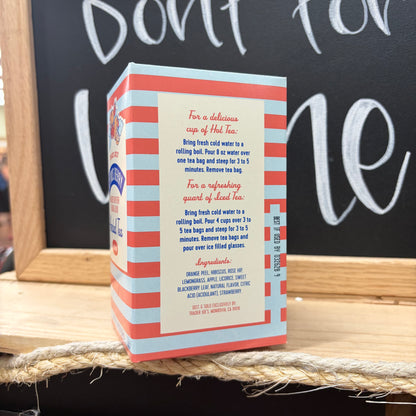 Don't for
ne
For a delicious
cup of Hot Tea:
Bring fresh cold water to a
rolling boil. Pour 8 oz water over
one tea bag and steep for 3 to 5
minutes. Remove tea bag.
For a refreshing
quart of Iced Tea:
Bring fresh cold water to a
rolling boil. Pour 4 cups over 3 to
5 tea bags and steep for 3 to 5
minutes. Remove tea bags and
pour over ice filled glasses.
Ingredients:
ORANGE PEEL, HIBISCUS, ROSE HIP,
LEMONGRASS, APPLE, LICORICE, SWEET
BLACKBERRY LEAF, NATURAL FLAVOR, CITRIC
ACID (ACIDULANT), STRAWBERRY
DIST. & SOLD EXCLUSIVELY BY:
TRADER JOE'S, MONROVIA, CA 91016